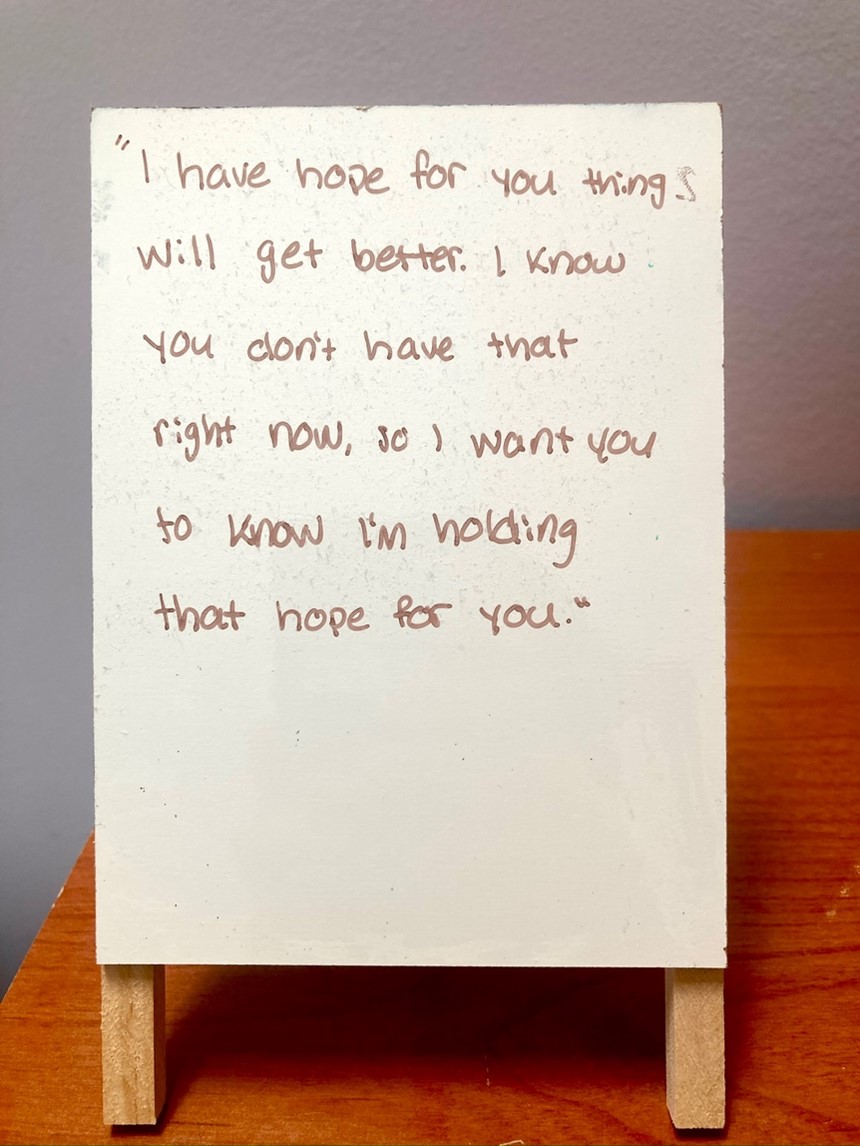 "I have hope for you things
will get better. I know
you don't have that
right now, so I want you
to know I'm holding
that hope for you."